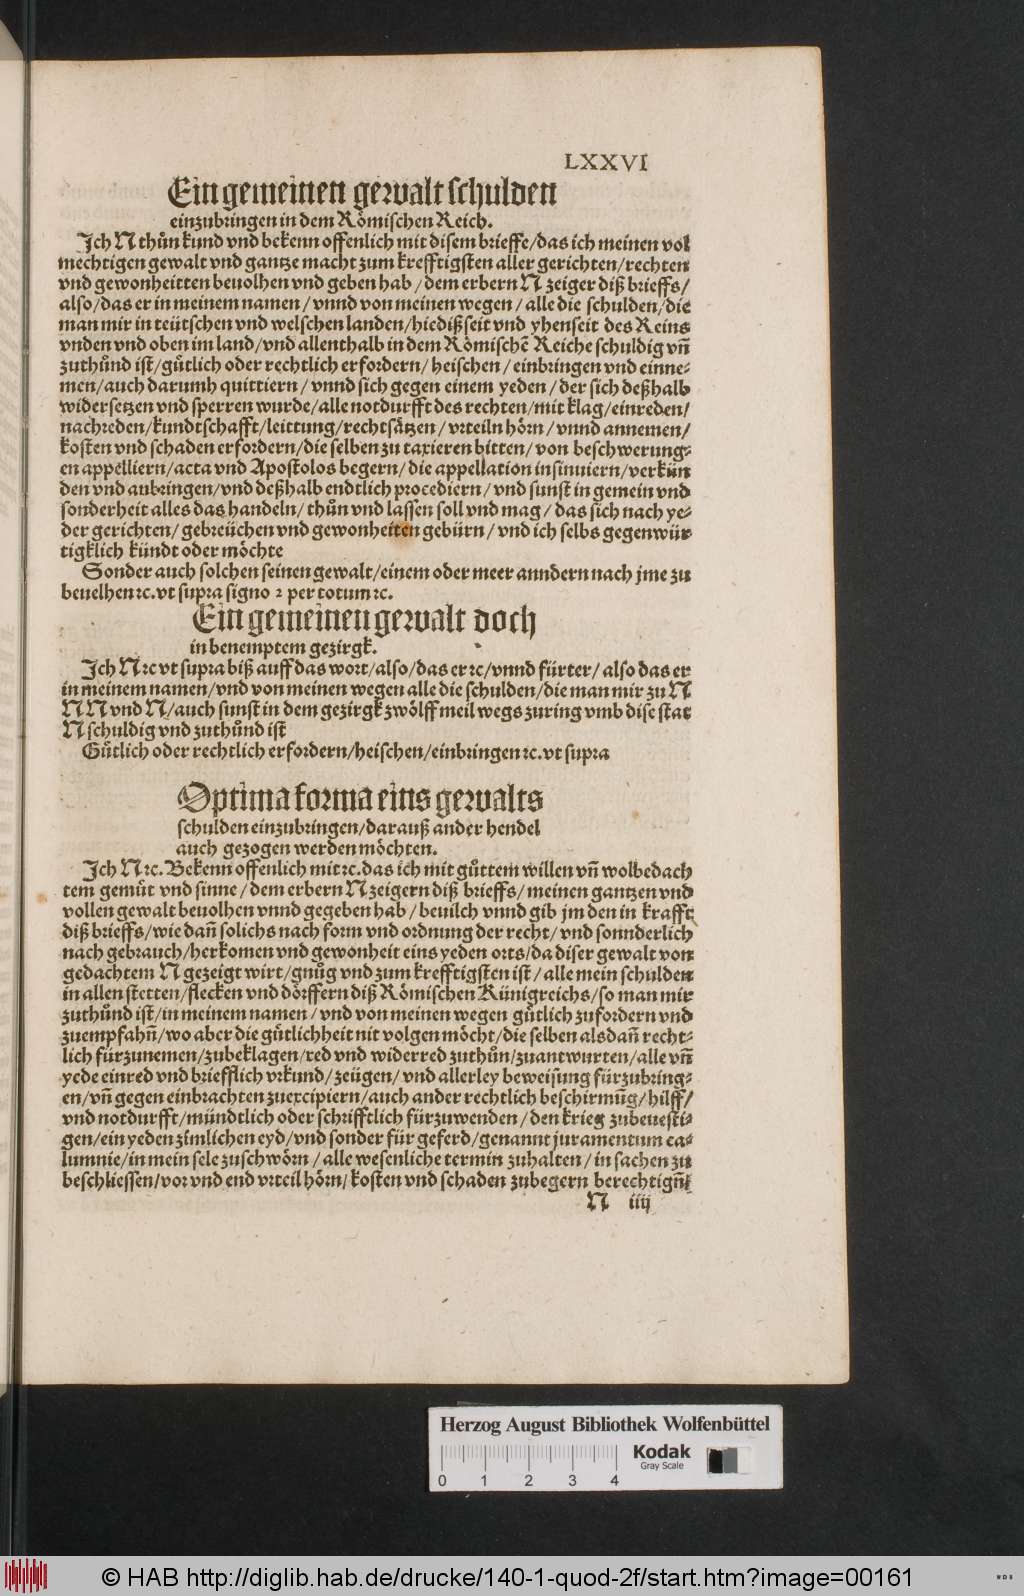 LXXVI
Ein gemeinen gewalt schulden
einzubringen in dem Römischen Reich.
Ich N thůn kund vnd bekenn offenlich mit disem brieffe/das ich meinen vol
mechtigen gewalt vnd gantze macht zum krefftigsten aller gerichten/rechten
vnd gewonheitten beuolhen vnd geben hab/dem erbern N zeiger diß brieffs/
also/das er in meinem namen/vnnd von meinen wegen/alle die schulden/die
man mir in teütschen vnd welschen landen/hiedißseit vnd yhenseit des Reins
vnden vnd oben im land/vnd allenthalb in dem Römischē Reiche schuldig vñ
zuthůnd ist/gůtlich oder rechtlich erfordern/heischen/einbringen vnd einne⸗
men/auch darumh quittiern/vnnd sich gegen einem yeden/der sich deßhalb
widersetzen vnd sperren wurde/alle notdurfft des rechten/mit klag/einreden/
nachreden/kundtschafft/leittung/rechtsätzen/vrteiln hörn/vnnd annemen/
kosten vnd schaden erfordern/die selben zu taxieren bitten/von beschwerung⸗
en appelliern/acta vnd Apostolos begern/die appellation insinuiern/verkün
den vnd aubringen/vnd deßhalb endtlich procediern/vnd sunst in gemein vnd
sonderheit alles das handeln/thůn vnd lassen soll vnd mag/das sich nach ye⸗
der gerichten/gebreüchen vnd gewonheiten gebürn/vnd ich selbs gegenwür⸗
tigklich kündt oder möchte
Sonder auch solchen seinen gewalt/einem oder meer anndern nach jme zu
beuelhen ꝛc. vt supra signo ꝛ per totum ꝛc.
Ein gemeinen gewalt doch
in benemptem gezirgk.
Ich N ꝛc vt supra biß auff das wort/also/das er ꝛc/vnnd fürter/also das er
in meinem namen/vnd von meinen wegen alle die schulden/die man mir zu N
N N vnd N/auch sunst in dem gezirgk zwölff meil wegs zuring vmb dise stat
N schuldig vnd zuthůnd ist
Gůtlich oder rechtlich erfordern/heischen/einbringen ꝛc. vt supra
Optima forma eins gewalts
schulden einzubringen/darauß ander hendel
auch gezogen werden möchten.
Ich N ꝛc. Bekenn offenlich mit ꝛc. das ich mit gůttem willen vñ wolbedach
tem gemůt vnd sinne/dem erbern N zeigern diß brieffs/meinen gantzen vnd
vollen gewalt beuolhen vnnd gegeben hab/beuilch vnnd gib jm den in krafft
diß brieffs/wie dañ solichs nach form vnd ordnung der recht/vnd sonnderlich
nach gebrauch/herkomen vnd gewonheit eins yeden orts/da diser gewalt von
gedachtem N gezeigt wirt/gnůg vnd zum krefftigsten ist/alle mein schulden
in allen stetten/flecken vnd dörffern diß Römischen Künigreichs/so man mir
zuthůnd ist/in meinem namen/vnd von meinen wegen gůtlich zufordern vnd
zuempfahñ/wo aber die gůtlichheit nit volgen möcht/die selben alsdañ recht⸗
lich fürzunemen/zubeklagen/red vnd widerred zuthůn/zuantwurten/alle vñ
yede einred vnd briefflich vrkund/zeügen/vnd allerley beweisung fürzubring⸗
en/vñ gegen einbrachten zuexcipiern/auch ander rechtlich beschirmūg/hilff/
vnd notdurfft/mündtlich oder schrifftlich fürzuwenden/den krieg zubeuesti⸗
gen/ein yeden zimlichen eyd/vnd sonder für geferd/genannt juramentum ca⸗
lumnie/in mein sele zuschwörn/alle wesenliche termin zuhalten/in sachen zu
beschliessen/vor vnd end vrteil hörn/kosten vnd schaden zubegern berechtigñ/
N iiij
Herzog August Bibliothek Wolfenbüttel
Kodak
Gray Scale
0 1 2 3 4
© HAB http://diglib.hab.de/drucke/140-1-quod-2f/start.htm?image=00161